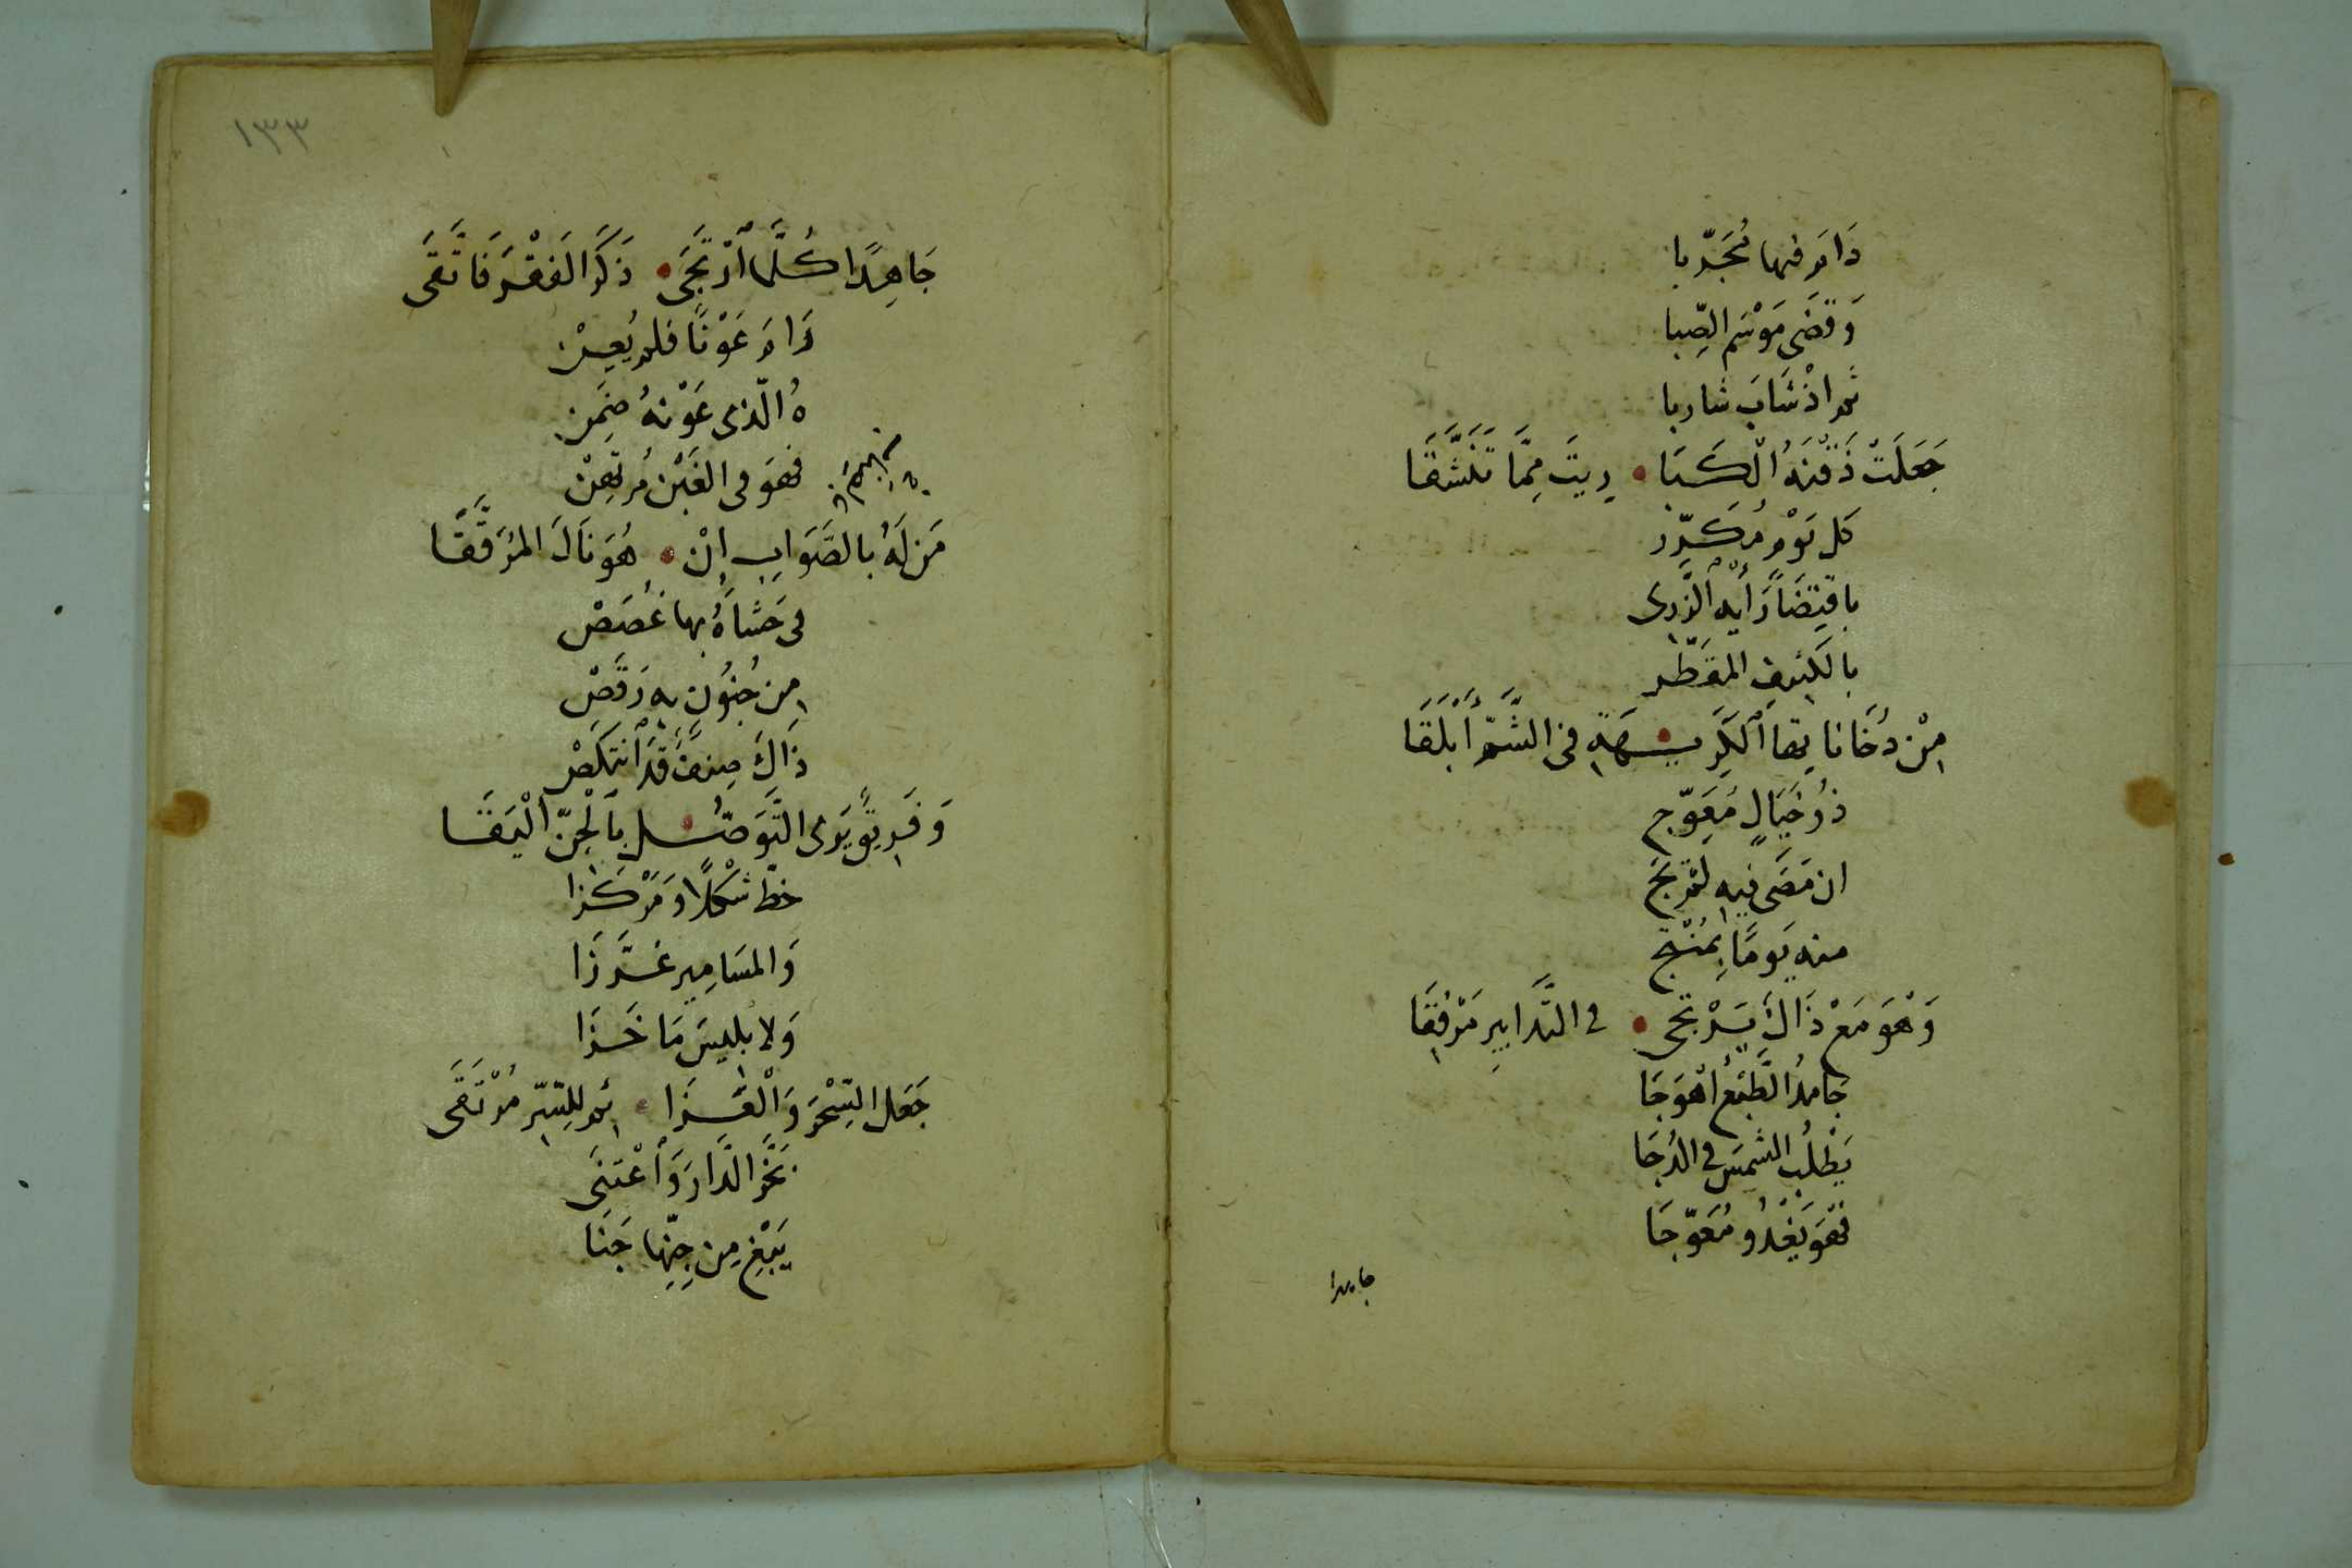 دَامَ فيها مُجَرّبا
وَقضَى مَوْسَم الصِّبا
ثم اذْ شَابَ شاربا
جَعَلَتْ ذَقْنَهُ الْكَبَا • رِيتَ مِمَّا تَنَشَّقَا
كل يَوْم مُكَرّر
باقْتِضَا رَأيه الزّرى
بالكَثِيف المقَطَّر
مِنْ دُخَانَاتِها الكَرِيهَةِ فى الشَّمّ أَبْلَقَا
ذُو خَيَالٍ مُعَوّج
ان مَضَى فيه لم يَجَ
منه يَومًا بِمُنْتج
وَهْوَ مَعْ ذَاكَ يَرْتجى • فى التدابِيرِ مَرْفِقَا
جَامدُ الطَّبْعِ أهْوَجَا
يَطْلُب الشمسَ فى الدُجَا
فَهْوَ يَغْدُو مُعَوّجَا
جاهدا
١٣٣
جَاهِدًا كُلَّمَا ارْتَجَى • ذَكَرَ الفَقْرَ فَاتَّقَى
رَامَ عَوْنًا فلم يُعِنْ
هُ الّذى عَوْنهُ ضَمِن
فهوَ فى الغَبْن مُرتَهِنْ
مَن لَهُ بالصَّوَابِ إنْ • هُوَ نَالَ المُرَقَّقَا
فى حَشَاهُ بها غُصَصْ
مِن جُنُونٍ به رَقَصْ
ذَاكَ صِنفٌ قَد انتَكَصْ
وَفَرِيقٌ يَرى التَّوَصُّل بالْجِنّ الْيَقَا
خطّ شَكْلًا وَمَرْكَزا
وَالمسَامِير غَرَّزَا
وَلابليسَ مَا خَزَا
جَعَل السِّحْرَ وَالْعَزَا • ئم للِسّر مُرْتَقَى
بَخَّرَ الدَّارَ وَاعْتَنَى
يَبْغِ مِن جِنّها جَنَا